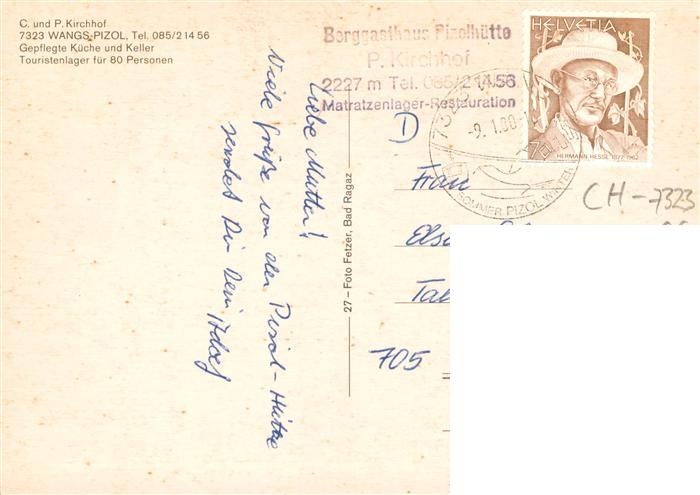 C. und P. Kirchhof
7323 WANGS-PIZOL, Tel. 085/2 14 56
Gepflegte Küche und Keller
Touristenlager für 80 Personen
Berggasthaus Pizolhütte
P. Kirchhof
2227 m Tel. 085/2 14 56
Matratzenlager-Restauration
HELVETIA
HERMANN HESSE 1877-1962
7323
-9.-1.80-1
SOMMER PIZOL-WINTER
CH-7323
Liebe Mutter!
Viele Grüße von der Pizol-Hütte
sendet Dir Dein Adolf
27 – Foto Fetzer, Bad Ragaz
D
Frau
705